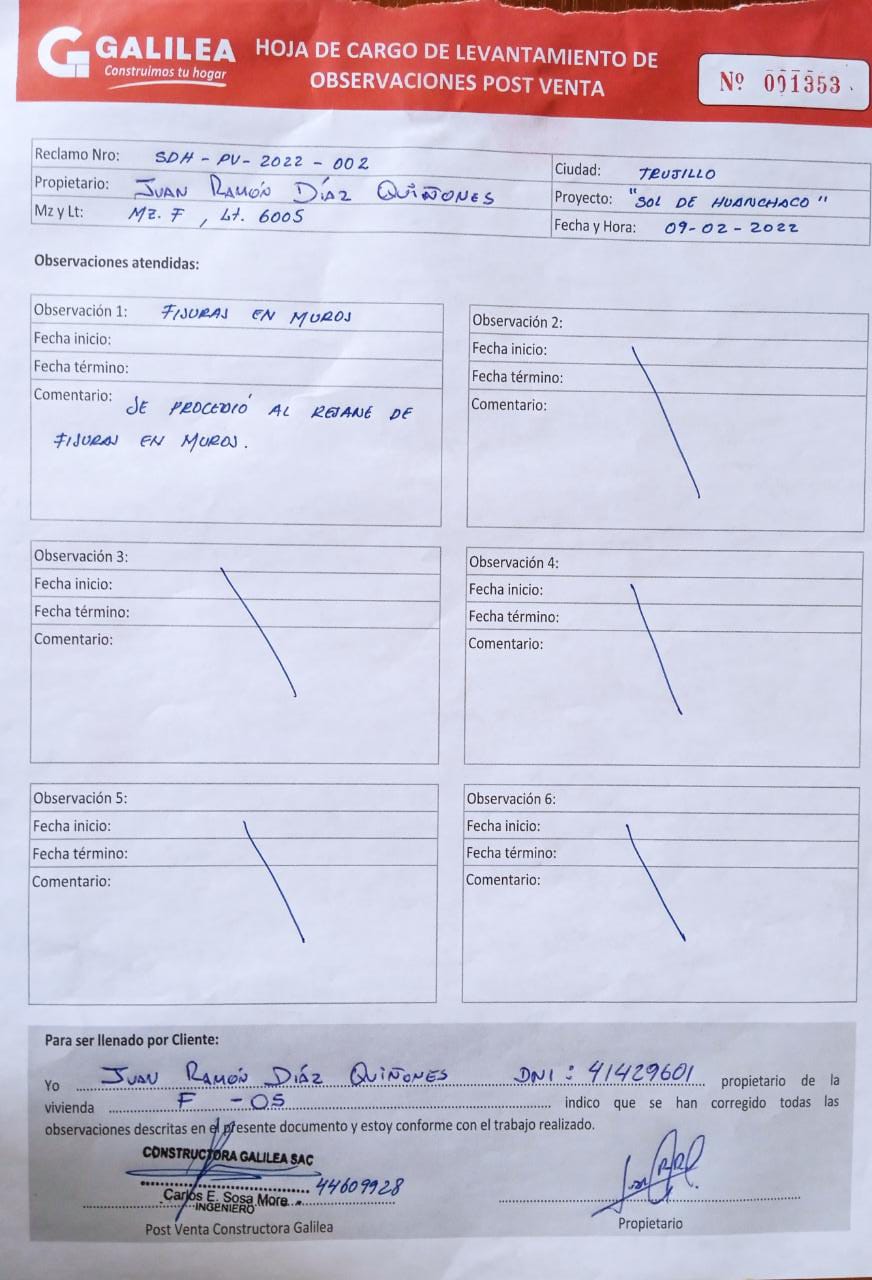 GALILEA
Construimos tu hogar
HOJA DE CARGO DE LEVANTAMIENTO DE
OBSERVACIONES POST VENTA
Nº 001353
Reclamo Nro: SDH - PV - 2022 - 002
Propietario: JUAN RAMÓN DÍAZ QUIÑONES
Mz y Lt: MZ. F , Lt. 6005
Ciudad: TRUJILLO
Proyecto: "SOL DE HUANCHACO"
Fecha y Hora: 09-02-2022
Observaciones atendidas:
Observación 1: FISURAS EN MUROS
Fecha inicio:
Fecha término:
Comentario: SE PROCEDIÓ AL RESANE DE
FISURAS EN MUROS.
Observación 2:
Fecha inicio:
Fecha término:
Comentario:
Observación 3:
Fecha inicio:
Fecha término:
Comentario:
Observación 4:
Fecha inicio:
Fecha término:
Comentario:
Observación 5:
Fecha inicio:
Fecha término:
Comentario:
Observación 6:
Fecha inicio:
Fecha término:
Comentario:
Para ser llenado por Cliente:
Yo JUAN RAMÓN DÍAZ QUIÑONES DNI: 41429601 propietario de la
vivienda F - 05 indico que se han corregido todas las
observaciones descritas en el presente documento y estoy conforme con el trabajo realizado.
CONSTRUCTORA GALILEA SAC
44609928
Carlos E. Sosa More
INGENIERO
Post Venta Constructora Galilea
Propietario